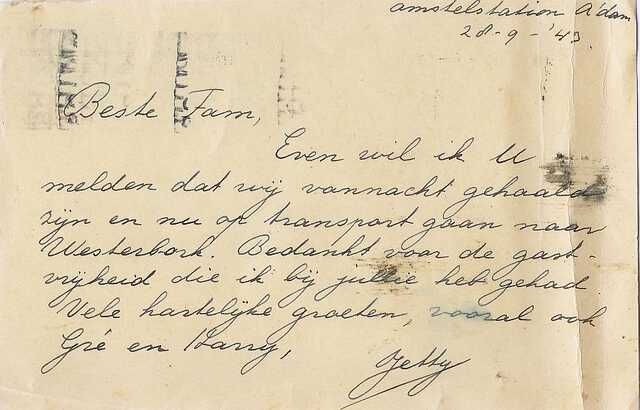 Amstelstation A'dam
28-9-'43.
Beste Fam,
Even wil ik U
melden dat wij vannacht gehaald
zijn en nu op transport gaan naar
Westerbork. Bedankt voor de gast-
vrijheid die ik bij jullie heb gehad
Vele hartelijke groeten, vooral ook
Gré en Harry,
Jetty